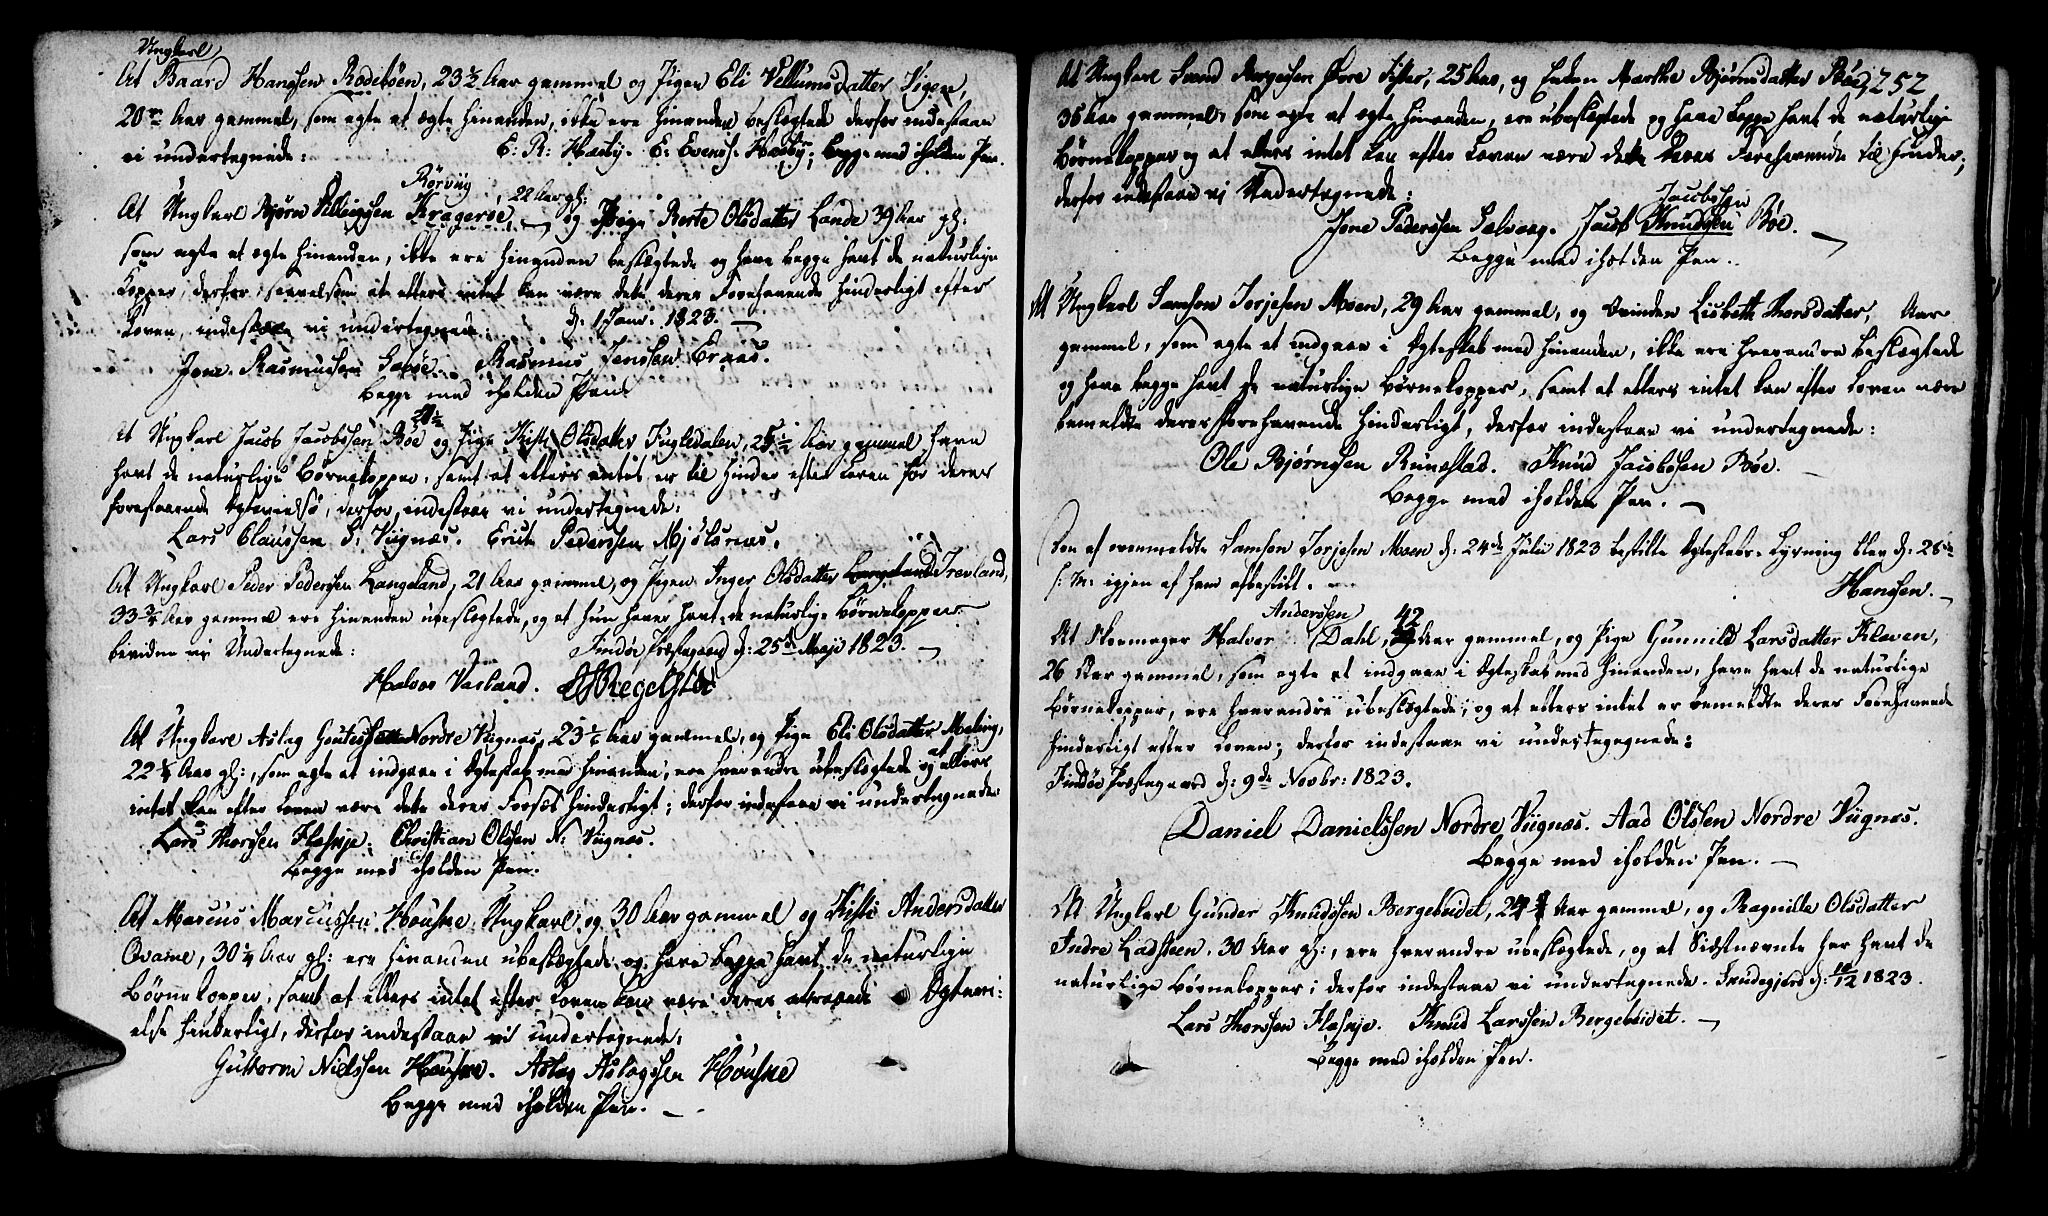 Ungkarl
At Baard Hansen Rødebøen, 23½ Aar gammel og Pigen Eli Villumsdatter Vigen,
20 Aar gammel, som agte at ægte hinanden, ikke ere hinanden beslægtede derfor indestaar
vi undertegnede: E: R: Hæsby. E: Evens: Hæsby, begge med iholden Pen.
Rørviig, 22 Aar gl:
At Ungkarl Bjørn Kragerøe, og Pige Berte Olsdatter Lande 39 Aar gl:
som agte at ægte hinanden, ikke ere hinanden beslægtede og have begge havt de naturlige
Kopper, derfor, saavelsom at ellers intet kan være dette deres Forehavende hinderligt efter
Loven, indestaae vi undertegnede: d: 1 Janr: 1823.
Jone Rasmussen Sebøe. Rasmus Jensen Eraas.
begge med iholden Pen.
21½
At Ungkarl Jacob Jacobsen Bøe og Pige Kisti Olsdatter Fugledalen, 25½ Aar gammel have
havt de naturlige Børnekopper, samt at ellers intet er til Hinder efter Loven for deres
forestaaende Ægtevielse, derfor indestaae vi undertegnede:
Lars Claussen S: Viignæs. Erich Pedersen Mjølsnæs.
At Ungkarl Peder Pedersen Langeland, 21 Aar gammel, og Pigen Inger Olsdatter Langeland Trevland,
33¾ Aar gammel ere hinanden ubeslægtede, og at hun haver havt de naturlige Børnekopper.
bevidne vi Undertegnede: Findøe Præstegaard d: 25de Maji 1823.
Halvor Vasland.
At Ungkarl Aslag Goutessen Nordre Viignæs, 23½ Aar gammel, og Pige Eli Olsdatter Meling,
22¼ Aar gl:, som agte at indgaae i Ægteskab med hinanden, ere hverandre ubeslægtede og at ellers
intet kan efter Loven være dette deres Forsæt hinderligt; derfor indestaae vi undertegnede
Lars Thorsen Fleskje. Christian Olsen N: Viignæs.
begge med iholden Pen.
At Marcus Marcussen Houske Ungkarl og 30 Aar gammel og Kisti Andersdatter
Qvame, 30¼ Aar gl: ere hinanden ubeslægtede og have begge havt de naturlige
Børnekopper, samt at ellers intet efter Loven kan være deres Ægtevi:
else hinderligt, derfor indestaae vi undertegnede,
Guttorm Nielssen Houske. Aslag Aslagssen Houske
begge med iholden Pen.
252
At Ungkarl Svend Aargesen Øvre Fister, 25 Aar, og Enken Marthe Bjørnsdatter Bøe,
36 Aar gammel, som agte at ægte hinanden, ere ubeslægtede og have begge havt de naturlige
Børnekopper og at ellers intet kan efter Loven være dette deres Forehavende til Hinder,
derfor indestaae vi Undertegnede:
Jacobsen
Jone Pederssen Selvaag. Jacob Knudssen Bøe.
begge med iholden Pen.
At Ungkarl Samson Torjesen Moen, 29 Aar gammel, og Qvinden Lisbeth Thorsdatter, Aar
gammel, som agte at indgaae i Ægteskab med hinanden, ikke ere hverandre beslægtede
og have begge havt de naturlige Børnekopper, samt at ellers intet kan efter Loven være
bemeldte deres Forehavende hinderligt, derfor indestaae vi undertegnede:
Ole Bjørnsen Runestad. Knud Jacobsen Bøe.
begge med iholden Pen.
Den af ovenmeldte Samson Torjesen Moen d: 24de Julii 1823 bestilte Ægteskabs-Lysning blev d: 28de
s: M: igjen af ham afbestilt.
Hanssen.
Anderssen 42
At Skomager Halvor Dahl, Aar gammel, og Pige Gunnild Larsdatter Kleven,
26 Aar gammel, som agte at indgaae i Ægteskab med hinanden, have havt de naturlige
Børnekopper, ere hverandre ubeslægtede, og at ellers intet er bemeldte deres Forehavende
hinderligt efter Loven; derfor indestaae vi undertegnede:
Findøe Præstegaard d: 9de Novbr: 1823.
Daniel Danielssen Nordre Viignæs. Aad Olsen Nordre Viignæs.
begge med iholden Pen.
At Ungkarl Gunder Knudssen Bergebeidet, 24 Aar gammel, og Ragnille Olsdatter
Indre Ladsteen, 30 Aar gl:, ere hverandre ubeslægtede, og at Sidstnævnte har havt de
naturlige Børnekopper; derfor indestaae vi undertegnede. d: 10/12 1823.
Lars Thorsen Fleskje. Knud Larssen Bergebeidet.
begge med iholden Pen.